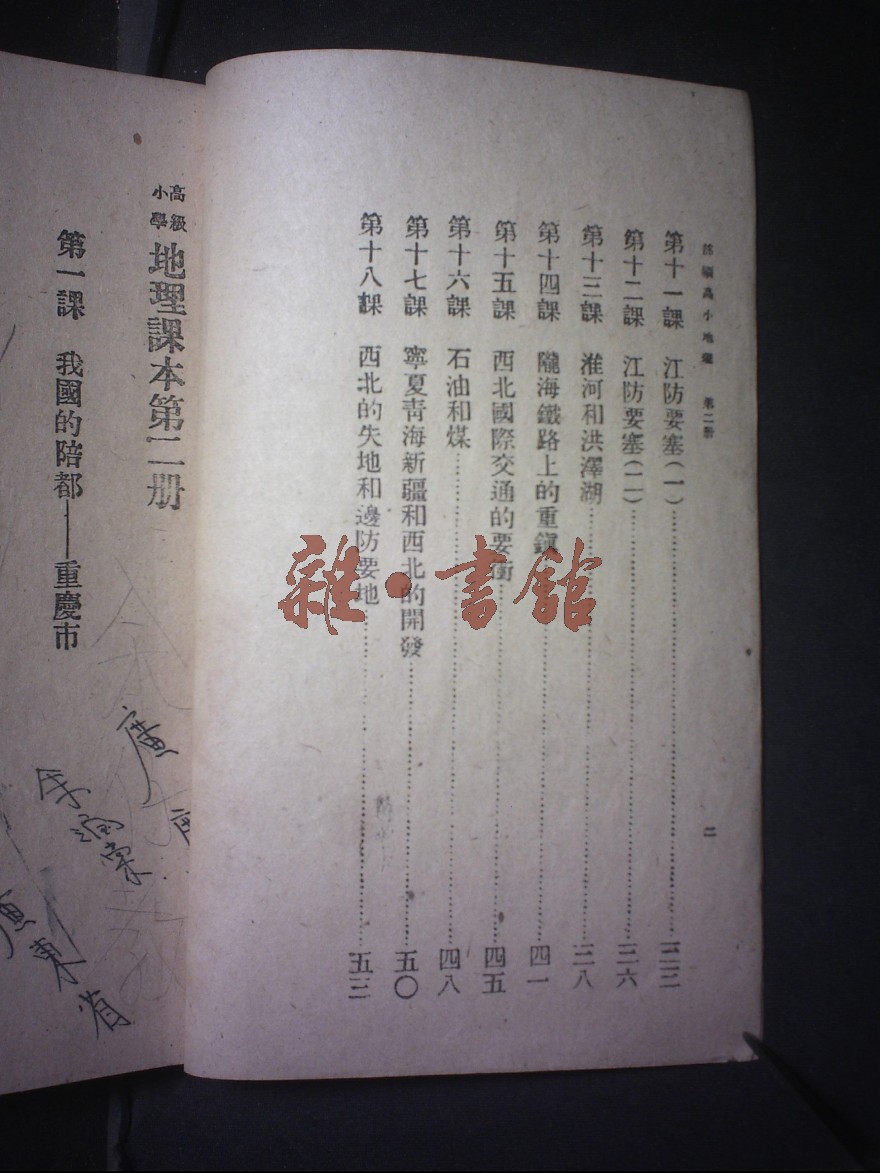 高小地理 第二册
第十一課 江防要塞(一)三三
第十二課 江防要塞(二)三六
第十三課 淮河和洪澤湖三八
第十四課 隴海鐵路上的重鎭四一
第十五課 西北國際交通的要衝四五
第十六課 石油和煤四八
第十七課 寧夏靑海新疆和西北的開發五〇
第十八課 西北的失地和邊防要地五三
二
高級小學 地理課本第二册
第一課 我國的陪都——重慶市
廣東省
雜·書館